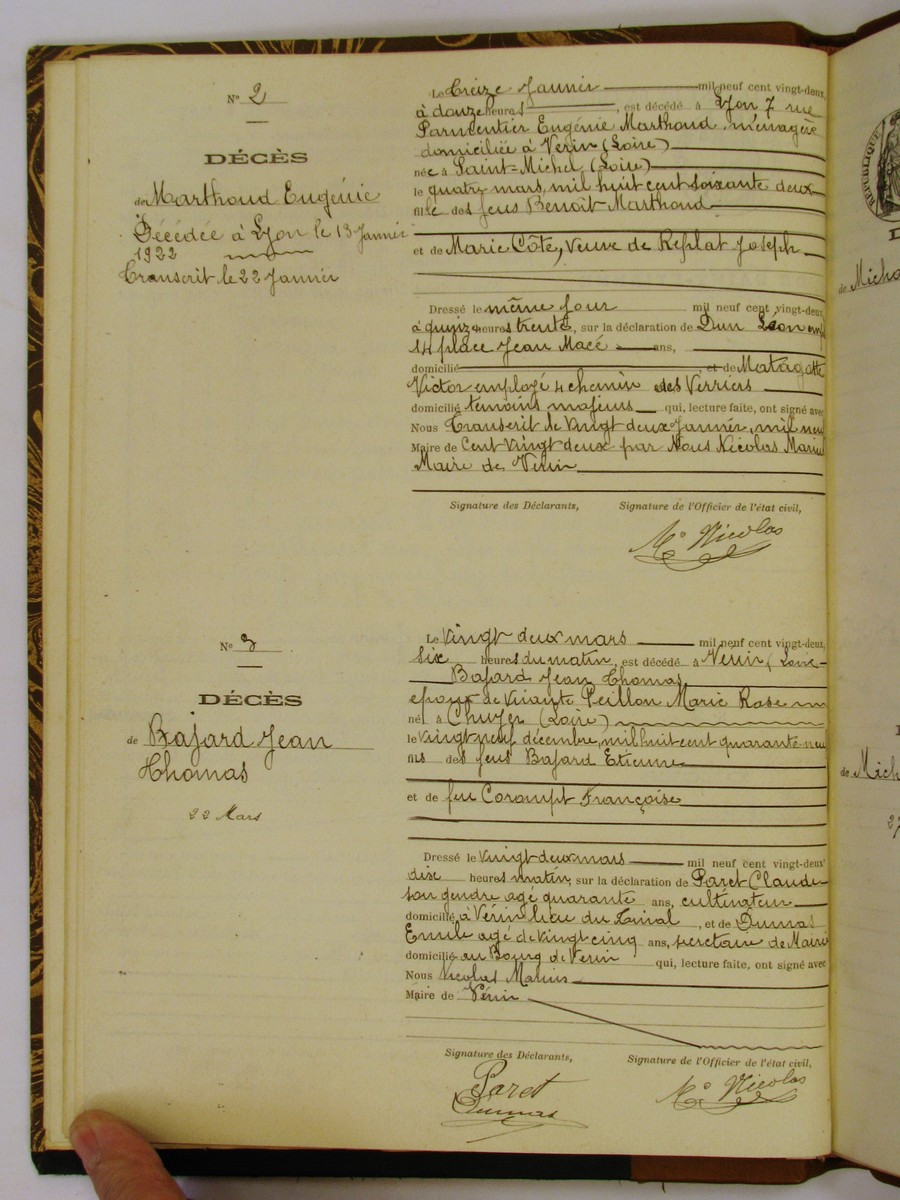 N° 2
DÉCÈS
de Marthoud Eugénie
Décédée à Lyon le 13 Janvier
1922
Transcrit le 22 Janvier
Le Treize Janvier mil neuf cent vingt-deux,
à douze heures, est décédé à Lyon 7 rue
Parmentier Eugénie Marthoud, ménagère
domiciliée à Verin (Loire)
née à Saint-Michel (Loire)
le quatre mars, mil huit cent soixante deux
fille des feus Benoît Marthoud
et de Marie Côte, Veuve de Replat Joseph
Dressé le même jour mil neuf cent vingt-deux,
à quinze heures trente, sur la déclaration de Dun Léon emp
14 place Jean Macé ans,
domicilié, et de Matagatte
Victor employé 4 chemin des Verriers
domicilié temoins majeurs qui, lecture faite, ont signé avec
Nous Transcrit le Vingt deux Janvier, mil neuf
Maire de Cent vingt deux par Nous Nicolas Marius
Maire de Verin
Signature des Déclarants, Signature de l'Officier de l'état civil,
Ms Nicolas
N° 3
DÉCÈS
de Bajard Jean
Thomas
22 Mars
Le Vingt deux mars mil neuf cent vingt-deux,
Six heures du matin, est décédé à Verin (Loire
Bajard Jean Thomas
epoux de vivante Peillon Marie Rose
né à Chuyer (Loire)
le vingt neuf décembre, mil huit cent quarante-neuf
fils des feus Bajard Etienne
et de feu Corompt Françoise
Dressé le vingt deux mars mil neuf cent vingt-deux
dix heures matin, sur la déclaration de Paret Claude
son gendre agé quarante ans, cultivateur
domicilié à Vérin lieu du, et de Dumas
Emile agé de vingt cinq ans, secretaire de Mairie
domicilié au Bourg de Verin qui, lecture faite, ont signé avec
Nous Nicolas Marius
Maire de Vérin
Signature des Déclarants, Signature de l'Officier de l'état civil,
Paret
Dumas
Ms Nicolas
RÉPUBLIQUE
de Micha
de Mich